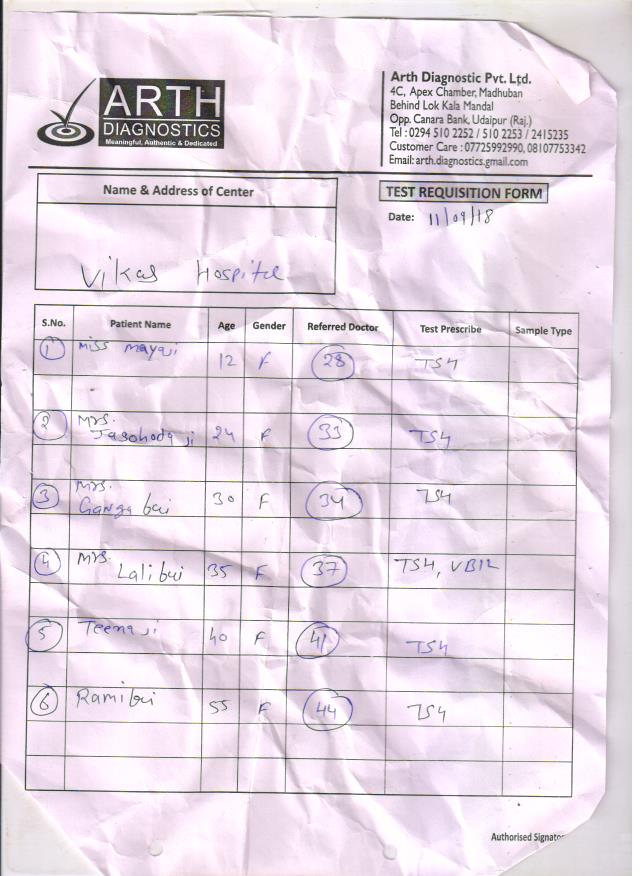 ARTH
DIAGNOSTICS
Meaningful, Authentic & Dedicated
Arth Diagnostic Pvt. Ltd.
4C, Apex Chamber, Madhuban
Behind Lok Kala Mandal
Opp. Canara Bank, Udaipur (Raj.)
Tel : 0294 510 2252 / 510 2253 / 2415235
Customer Care : 07725992990, 08107753342
Email: arth.diagnostics.gmail.com
Name & Address of Center
TEST REQUISITION FORM
Date: 11/09/18
Vikas Hospital
S.No. Patient Name Age Gender Referred Doctor Test Prescribe Sample Type
1 Miss mayaji 12 F 28 TS4
2 Mrs.
Jasohoda ji 24 F 33 TS4
3 Mrs.
Ganga bai 30 F 34 TS4
4 Mrs.
Lali bai 35 F 37 TS4, VB12
5 Teenaji 40 F 41 TS4
6 Rami bai 55 F 44 TS4
Authorised Signato